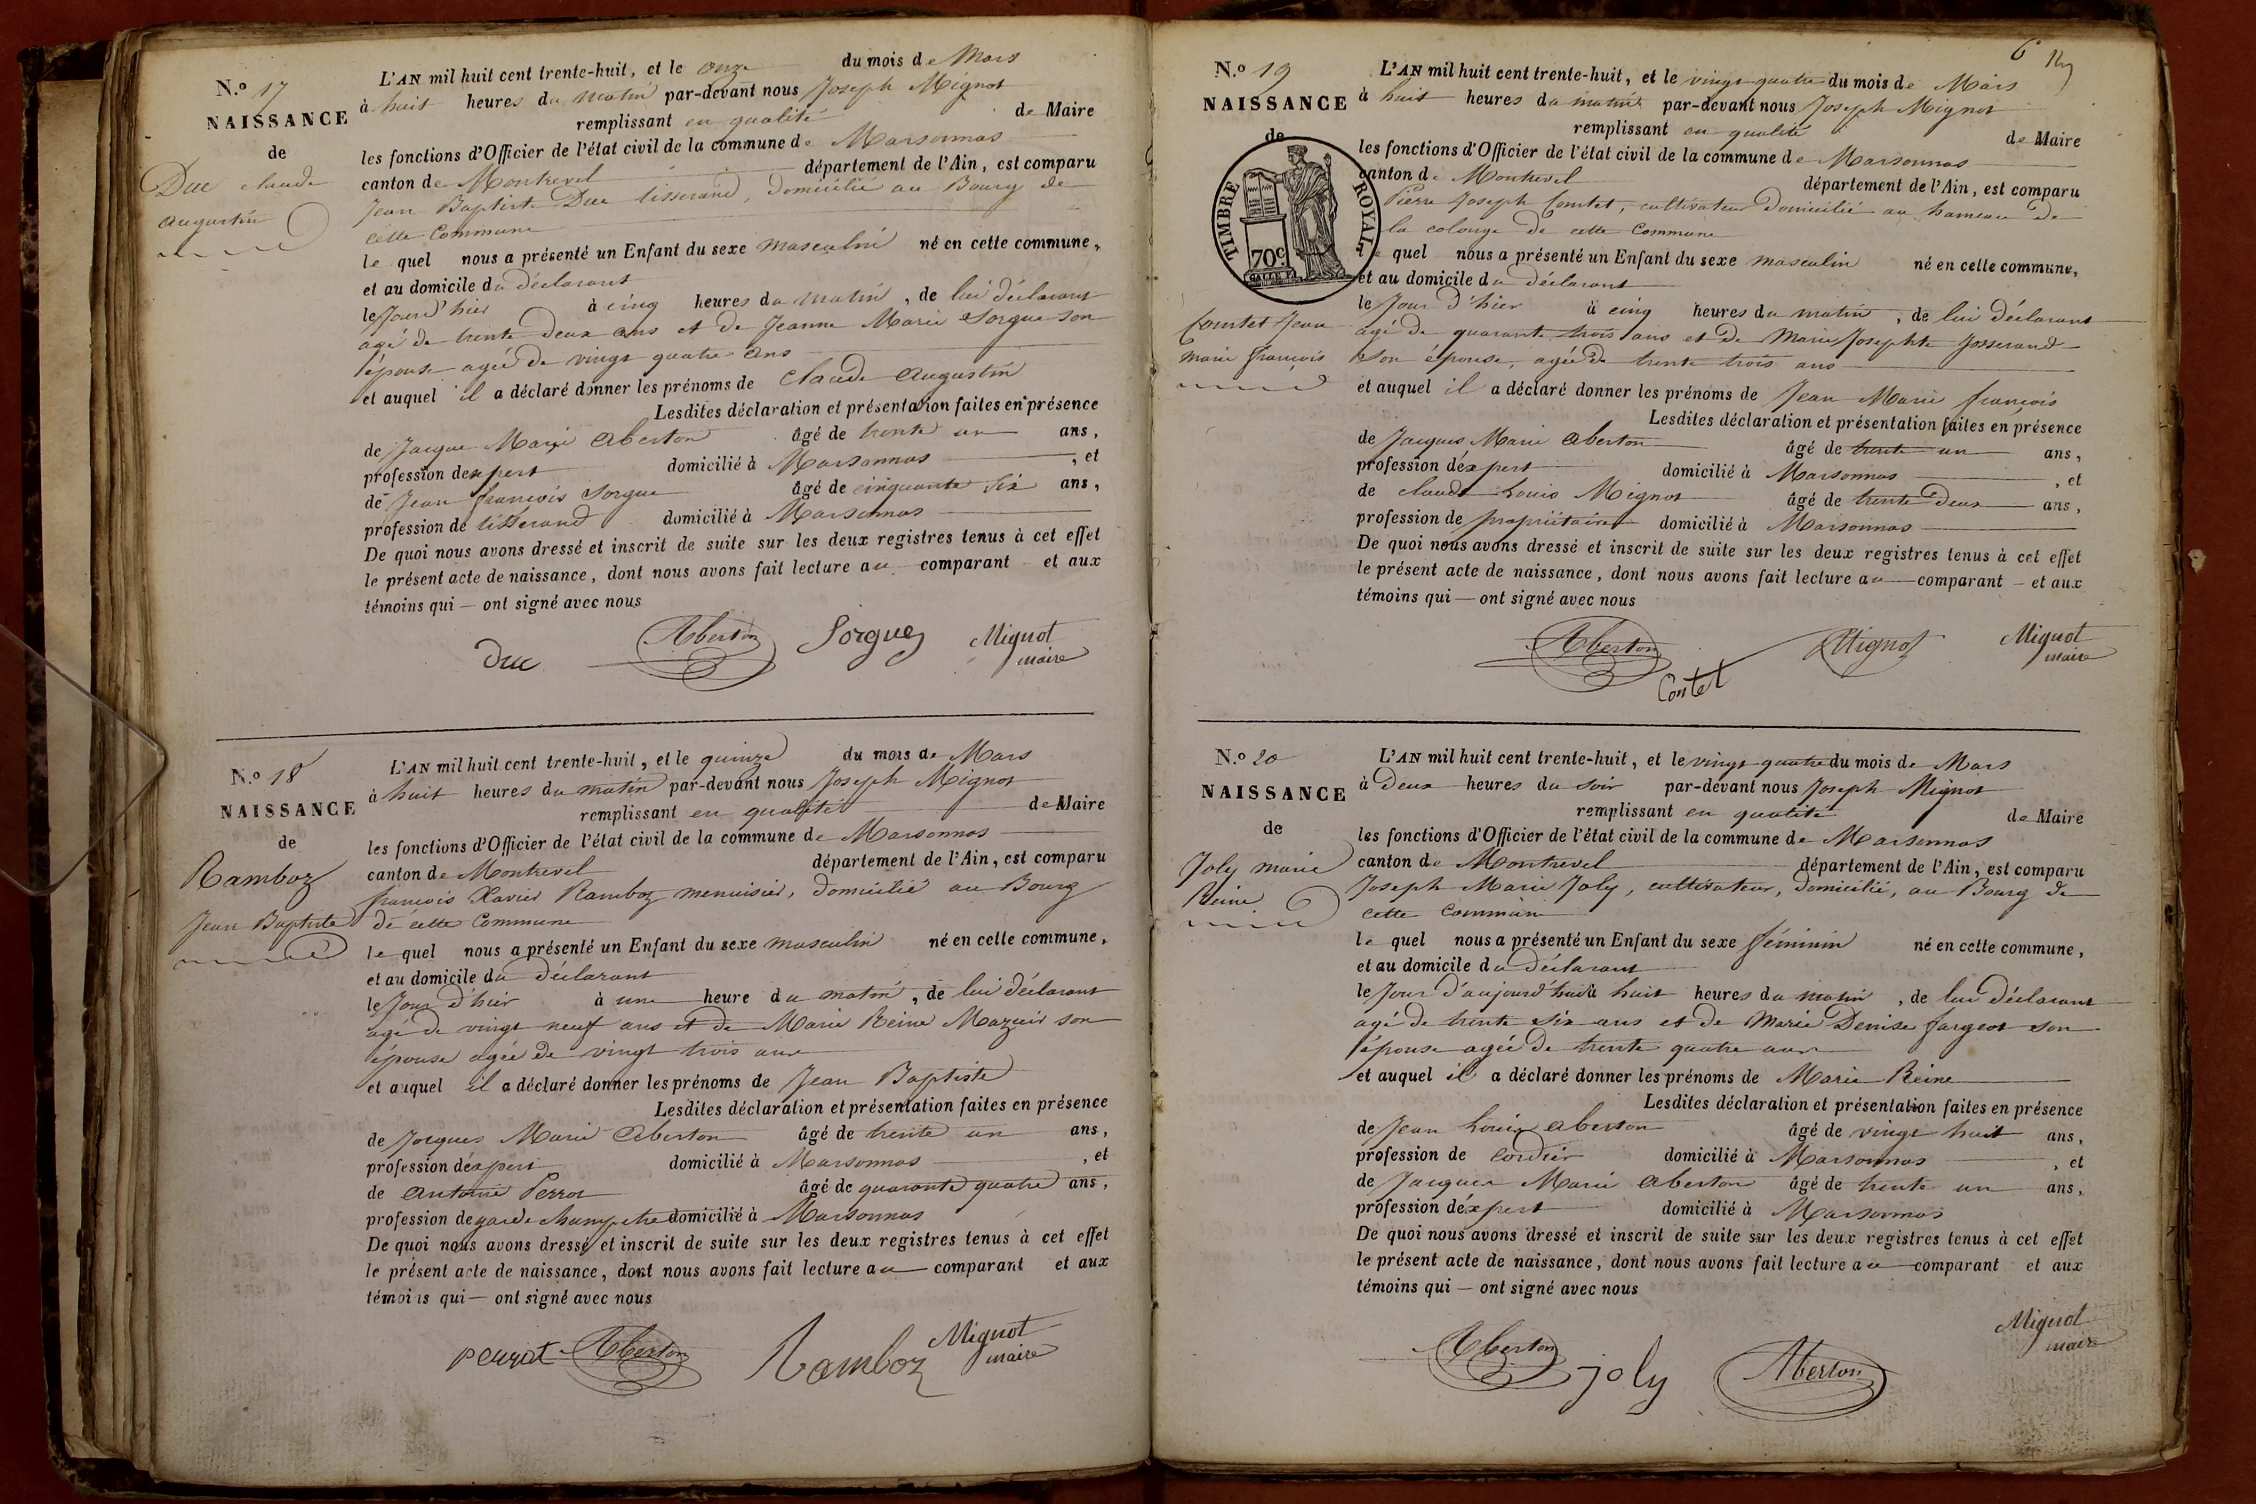 N.° 17
NAISSANCE
de
Duc Claude
Augustin
L'AN mil huit cent trente-huit, et le onze du mois de Mars
à huit heures du matin par-devant nous Joseph Mignot
remplissant en qualité de Maire
les fonctions d'Officier de l'état civil de la commune de Marsonnas
canton de Montrevel département de l'Ain, est comparu
Jean Baptiste Duc tisserand, domicilié au Bourg de
cette Commune
le quel nous a présenté un Enfant du sexe masculin né en cette commune,
et au domicile du déclarant
le Jour d'hier à cinq heures du matin, de lui déclarant
agé de trente deux ans et de Jeanne Marie Sorgue son
épouse agée de vingt quatre ans
et auquel il a déclaré donner les prénoms de Claude Augustin
Lesdites déclaration et présentation faites en présence
de Jacque Marie Aberton âgé de trente un ans,
profession dexpert domicilié à Marsonnas, et
de Jean françois Sorgue âgé de cinquante six ans,
profession de tisserand domicilié à Marsonnas
De quoi nous avons dressé et inscrit de suite sur les deux registres tenus à cet effet
le présent acte de naissance, dont nous avons fait lecture au comparant et aux
témoins qui — ont signé avec nous
Duc Aberton Sorgue Mignot
maire
N.° 18
NAISSANCE
de
Ramboz
Jean Baptiste
L'AN mil huit cent trente-huit, et le quinze du mois de Mars
à huit heures du matin par-devant nous Joseph Mignot
remplissant en qualité de Maire
les fonctions d'Officier de l'état civil de la commune de Marsonnas
canton de Montrevel département de l'Ain, est comparu
françois Xavier Ramboz menuisier, domicilié au Bourg
de cette Commune
le quel nous a présenté un Enfant du sexe masculin né en cette commune,
et au domicile du déclarant
le Jour d'hier à une heure du matin, de lui déclarant
agé de vingt neuf ans et de Marie Reine Mazuir son
épouse agée de vingt trois ans
et auquel il a déclaré donner les prénoms de Jean Baptiste
Lesdites déclaration et présentation faites en présence
de Jacques Marie Aberton âgé de trente un ans,
profession déxpert domicilié à Marsonnas, et
de Antoine Perrot âgé de quarante quatre ans,
profession de garde champetre domicilié à Marsonnas
De quoi nous avons dressé et inscrit de suite sur les deux registres tenus à cet effet
le présent acte de naissance, dont nous avons fait lecture au comparant et aux
témoins qui — ont signé avec nous
perrot Aberton Ramboz Mignot
maire
6e
N.° 19
NAISSANCE
de
TIMBRE ROYAL
70c.
Comtet Jean
marie françois
L'AN mil huit cent trente-huit, et le vingt quatre du mois de Mars
à huit heures du matin par-devant nous Joseph Mignot
remplissant en qualité de Maire
les fonctions d'Officier de l'état civil de la commune de Marsonnas
canton de Montrevel département de l'Ain, est comparu
Pierre Joseph Comtet, cultivateur domicilié au hameau de
la colonge de cette Commune
le quel nous a présenté un Enfant du sexe masculin né en cette commune,
et au domicile du déclarant
le Jour d'hier à cinq heures du matin, de lui déclarant
agé de quarante trois ans et de Marie Josephte Josserand
son épouse, agée de trente trois ans
et auquel il a déclaré donner les prénoms de Jean Marie françois
Lesdites déclaration et présentation faites en présence
de Jacques Marie Aberton âgé de trente un ans,
profession déxpert domicilié à Marsonnas, et
de claude Louis Mignot âgé de trente deux ans,
profession de propriétaire domicilié à Marsonnas
De quoi nous avons dressé et inscrit de suite sur les deux registres tenus à cet effet
le présent acte de naissance, dont nous avons fait lecture au comparant — et aux
témoins qui — ont signé avec nous
Aberton Contet Mignot Mignot
maire
N.° 20
NAISSANCE
de
Joly marie
Reine
L'AN mil huit cent trente-huit, et le vingt quatre du mois de Mars
à deux heures du soir par-devant nous Joseph Mignot
remplissant en qualité de Maire
les fonctions d'Officier de l'état civil de la commune de Marsonnas
canton de Montrevel département de l'Ain, est comparu
Joseph Marie Joly, cultivateur, domicilié, au Bourg de
cette Commune
le quel nous a présenté un Enfant du sexe féminin né en cette commune,
et au domicile du déclarant
le Jour d'aujourd'hui à huit heures du matin, de lui déclarant
agé de trente six ans et de Marie Denise fargeot son
épouse agée de trente quatre ans
et auquel il a déclaré donner les prénoms de Marie Reine
Lesdites déclaration et présentation faites en présence
de Jean Louis Aberton âgé de vingt huit ans,
profession de cordier domicilié à Marsonnas, et
de Jacques Marie Aberton âgé de trente un ans,
profession déxpert domicilié à Marsonnas
De quoi nous avons dressé et inscrit de suite sur les deux registres tenus à cet effet
le présent acte de naissance, dont nous avons fait lecture au comparant et aux
témoins qui — ont signé avec nous
Aberton joly Aberton Mignot
maire